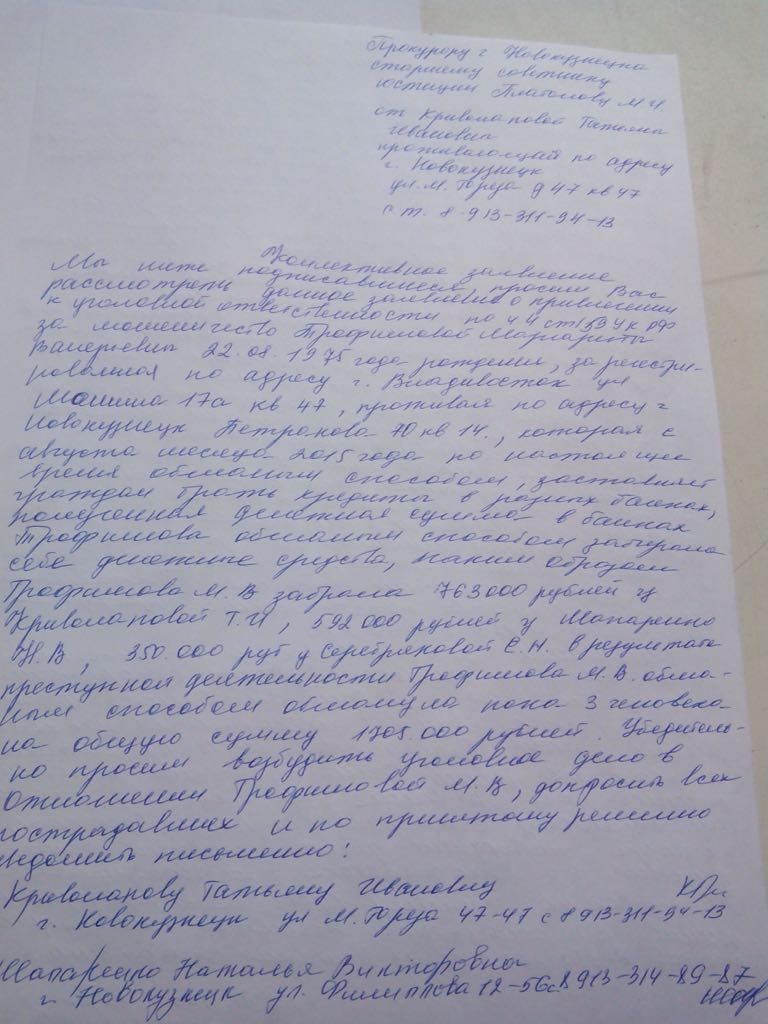 Прокурору г Новокузнецка
старшему советнику
юстиции Платонову М И
от Криволаповой Татьяны
Ивановны
проживающей по адресу
г. Новокузнецк
ул. М. Тореза д 47 кв 47
с т. 8-913-311-94-13
Коллективное заявление
Мы ниже подписавшиеся, просим Вас
рассмотреть данное заявление о привлечении
к уголовной ответственности по ч 4 ст 159 УК РФ
за мошенничество Трофимовой Маргариты
Валерьевны 22.08.1975 года рождения, зарегистри-
рованная по адресу г. Владивосток ул
17а кв 47, проживая по адресу г
Новокузнецк Петракова 70 кв 14., которая с
августа месяца 2015 года по настоящее
время обманным способом, заставляет
граждан брать кредиты в разных банках,
полученная денежная сумма в банках
Трофимова обманным способом забирала
себе денежные средства, таким образом
Трофимова М. В забрала 763000 рублей у
Криволаповой Т. И, 592000 рублей у Шапаренко
Н. В, 350.000 руб у Серебряковой Е. Н. в результате
преступной деятельности Трофимова М. В. обман-
ным способом обманула пока 3 человека
на общую сумму 1705.000 рублей. Убедитель-
но просим возбудить уголовное дело в
отношении Трофимовой М. В, допросить всех
пострадавших и по принятому решению
уведомить письменно:
Криволапову Татьяну Ивановну
г. Новокузнецк ул М. Тореза 47-47 с 8 913-311-94-13
Шапаренко Наталья Викторовна
г. Новокузнецк ул. Филиппова 12-56 с 8913-314-89-87